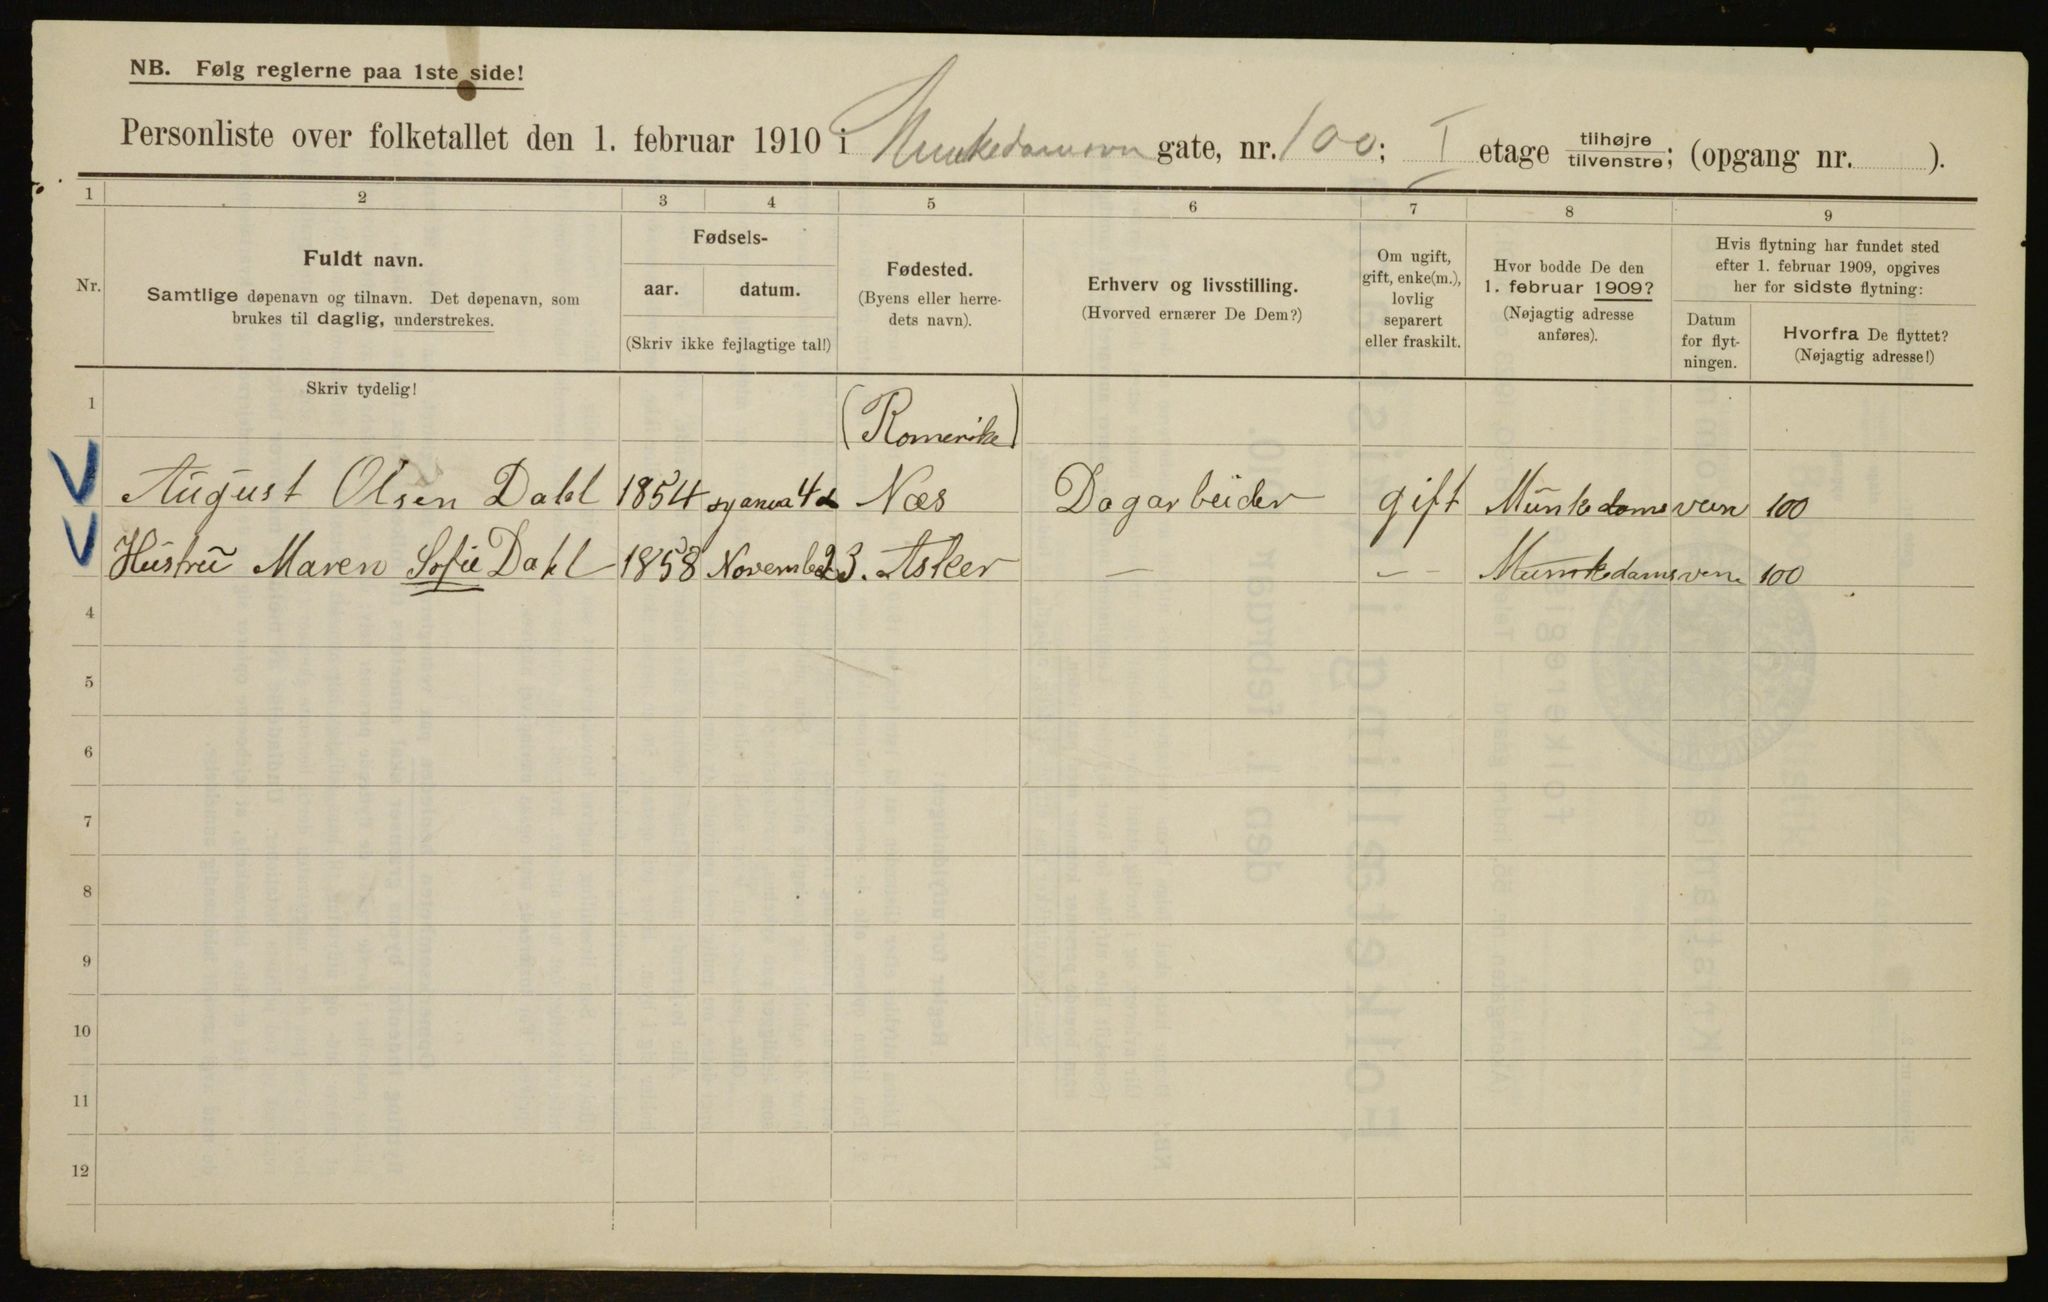 NB. Følg reglerne paa 1ste side!
Personliste over folketallet den 1. februar 1910 i Munkedamsvn gate, nr. 100; I etage tilhøjre tilvenstre; (opgang nr. ).
1 2 3 4 5 6 7 8 9
Nr.
Fuldt navn.
Samtlige døpenavn og tilnavn. Det døpenavn, som
brukes til daglig, understrekes.
Fødsels-
aar. datum.
(Skriv ikke fejlagtige tal!)
Fødested.
(Byens eller herre-
dets navn).
Erhverv og livsstilling.
(Hvorved ernærer De Dem?)
Om ugift,
gift, enke(m.),
lovlig
separert
eller fraskilt.
Hvor bodde De den
1. februar 1909?
(Nøjagtig adresse
anføres).
Hvis flytning har fundet sted
efter 1. februar 1909, opgives
her for sidste flytning:
Datum
for flyt-
ningen.
Hvorfra De flyttet?
(Nøjagtig adresse!)
Skriv tydelig!
1 (Romerike)
August Olsen Dahl 1854 4 Næs Dagarbeider gift Munkedamsveien 100
Hustru Maren Sofie Dahl 1858 November 23. Asker — — Munkedamsvene 100
4
5
6
7
8
9
10
11
12